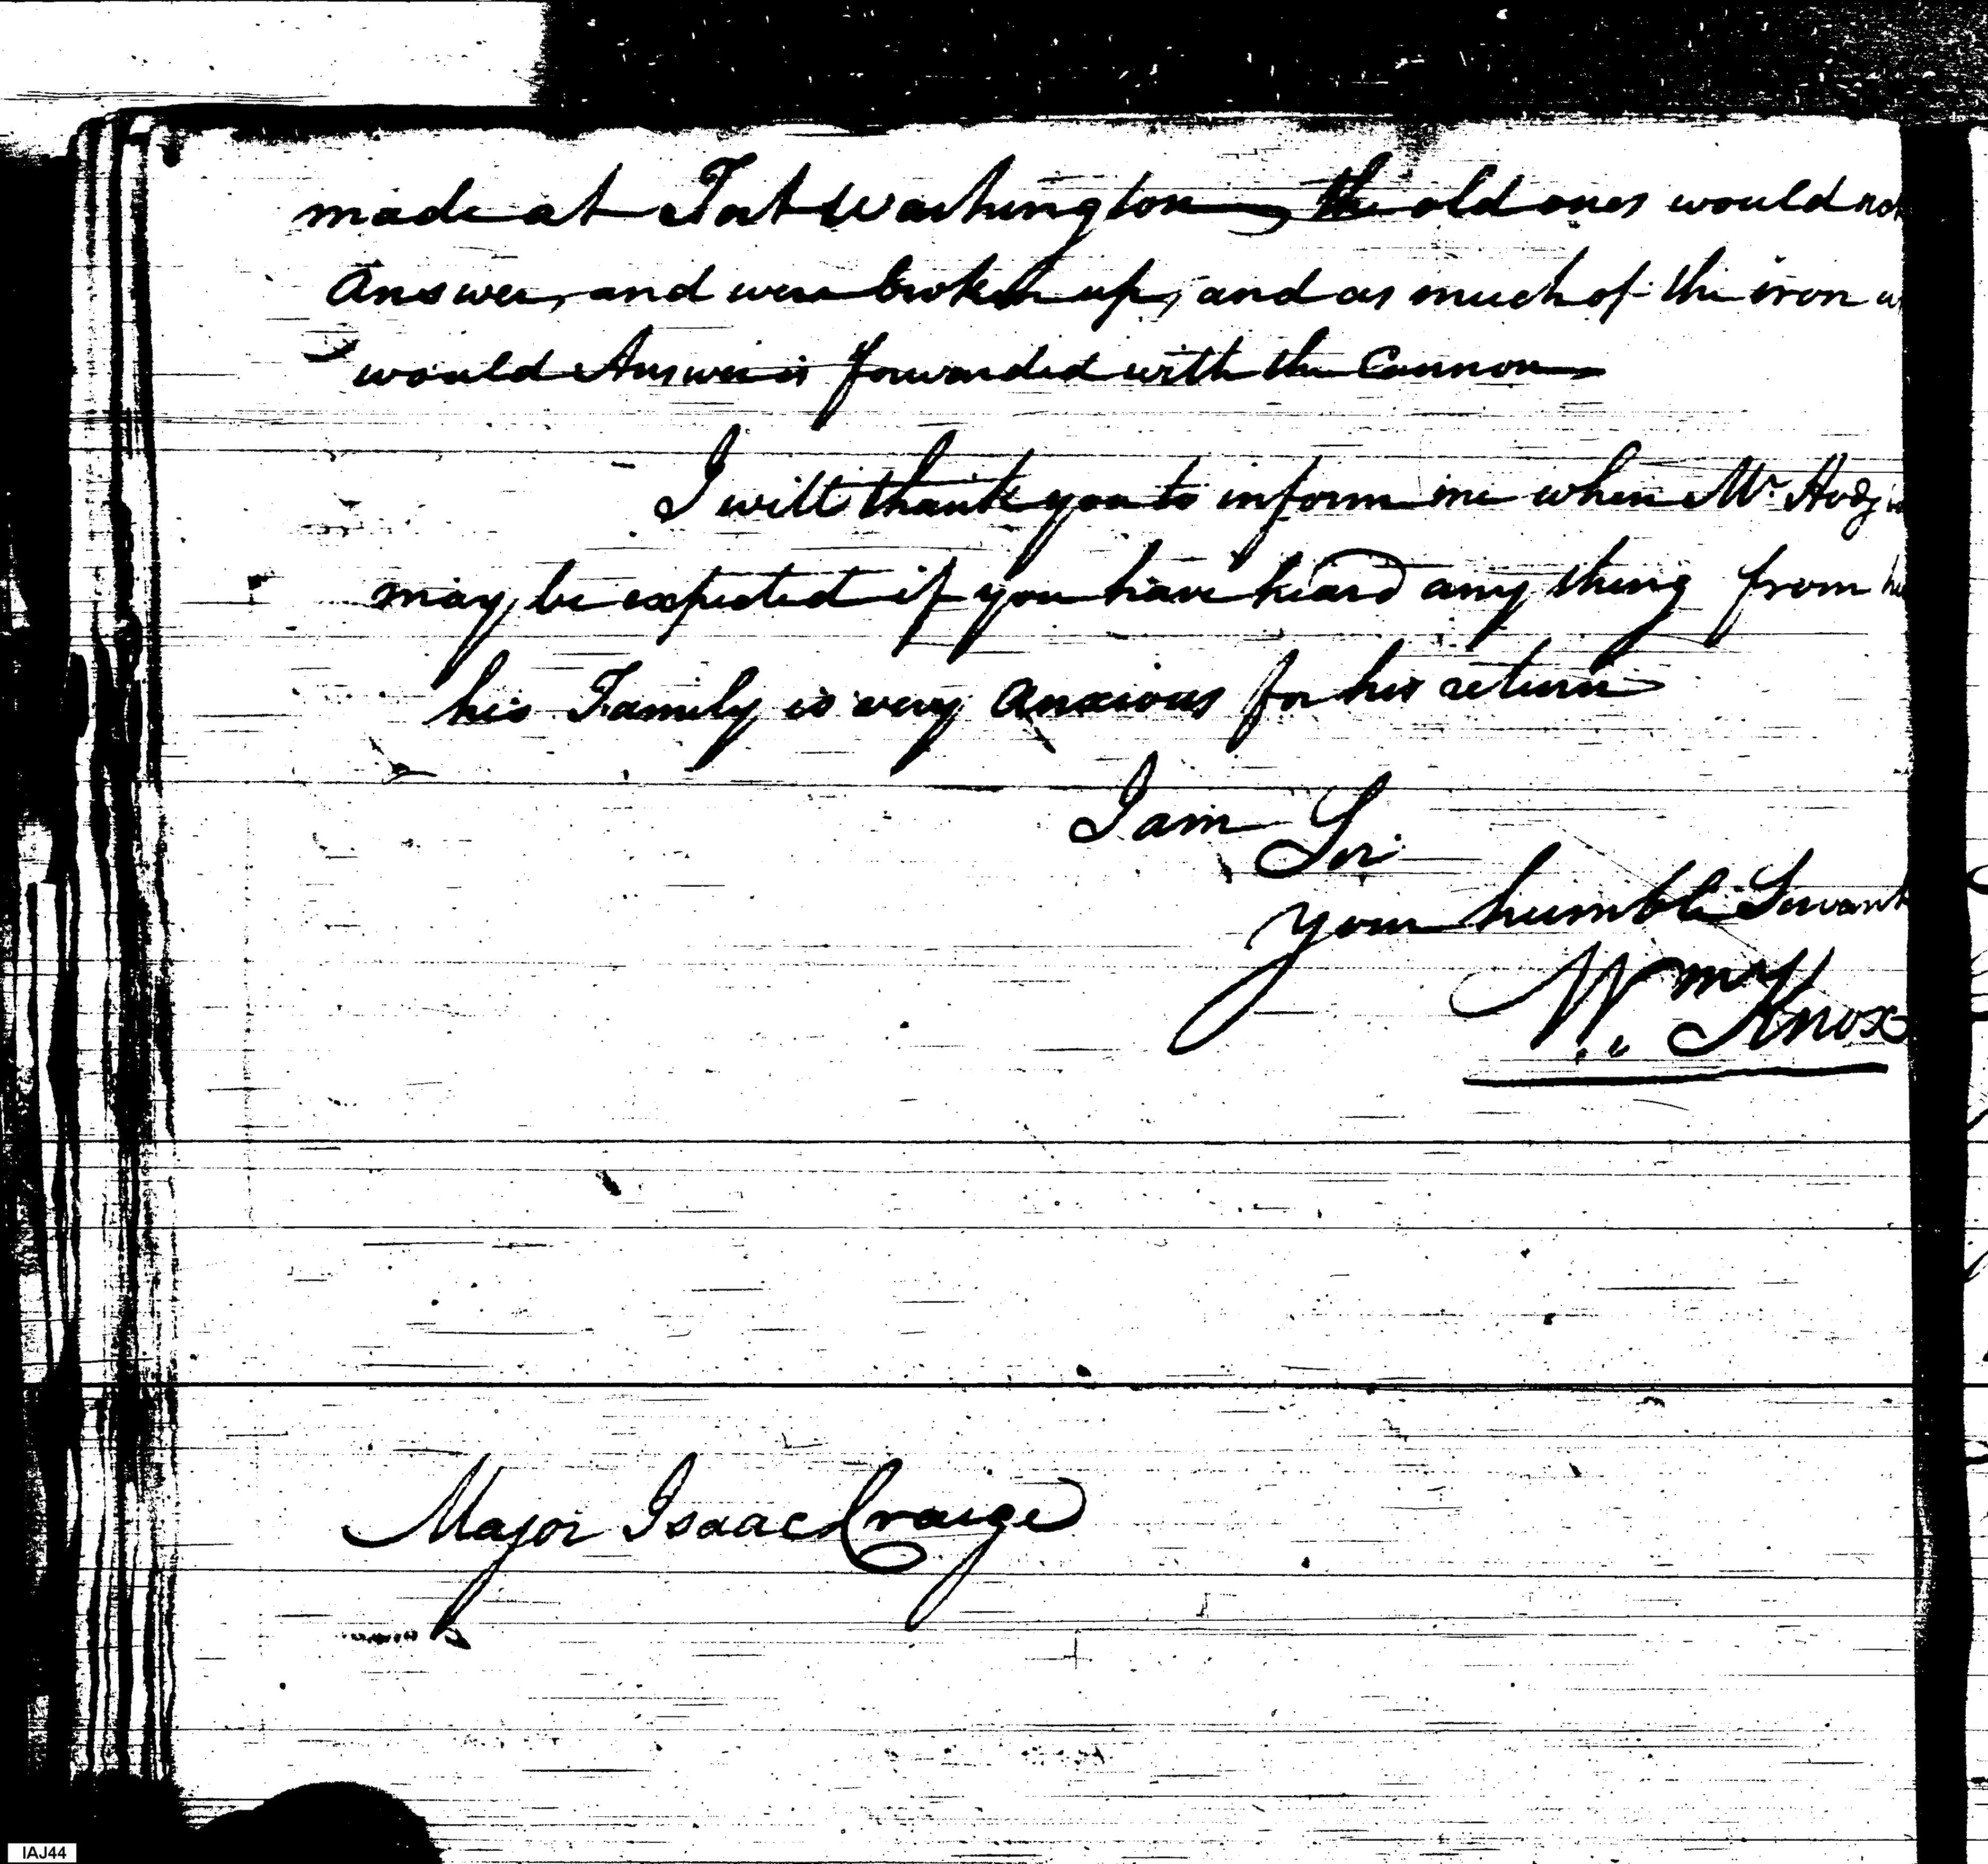 made at Fort Washington, the old ones would not
Answer, and were broken up, and as much of the iron
would Answer is forwarded with the Cannon
I will thank you to inform me when Mr
may be expected if you have heard any thing from
his Family is very anxious for his return
I am Sir
your humble Servant
Wm Knox
Major Isaac Craige
IAJ44